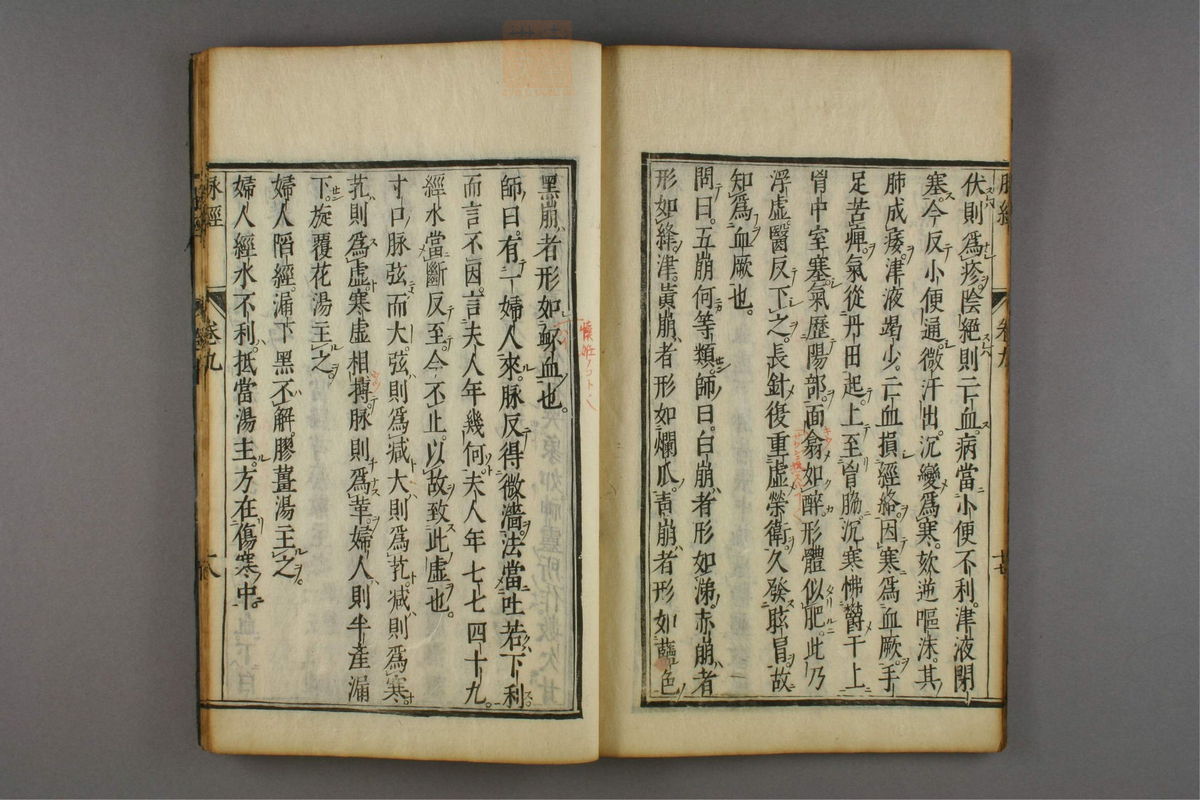 伏則爲疹陰絶則亡血病當小便不利津液閉
塞今反小便通微汗出沉變爲寒欬逆嘔沫其
肺成痿津液竭少亡血損經絡因寒爲血厥手
足苦痺氣從丹田起上至胷脇沉寒怫鬱于上
胷中窒塞氣歷陽部面翕如醉形體似肥此乃
浮虛醫反下之長針復重虛榮衛久發眩冒故
知爲血厥也
問曰五崩何等類師曰白崩者形如涕赤崩者
形如絳津黃崩者形如爛瓜青崩者形如藍色
黑崩者形如衃血也
師曰有一婦人來脉反得微濇法當吐若下利
而言不因言夫人年幾何夫人年七七四十九
經水當斷反至今不止以故致此虛也
寸口脉弦而大弦則爲减大則爲芤减則爲寒
芤則爲虛寒虛相搏脉則爲革婦人則半產漏
下旋覆花湯主之
婦人陷經漏下黑不解膠薑湯主之
婦人經水不利抵當湯主方在傷寒中
脉經
卷九